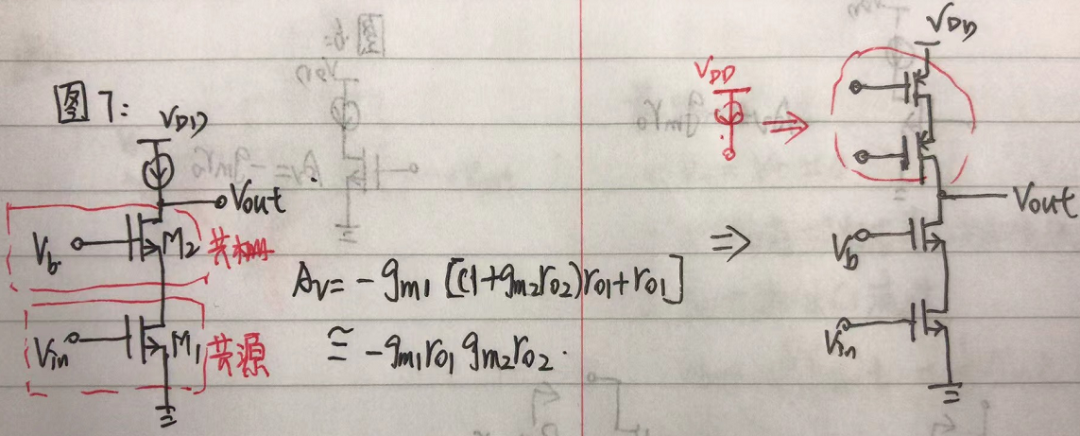 图7:
VDD
Vout
Vb
M2
共栅
Vin
M1
共源
Av = -gm1 [(1+gm2ro2)ro1+ro1]
≅ -gm1ro1 gm2ro2.
VDD
⇒
⇒
VDD
Vout
Vb
Vin